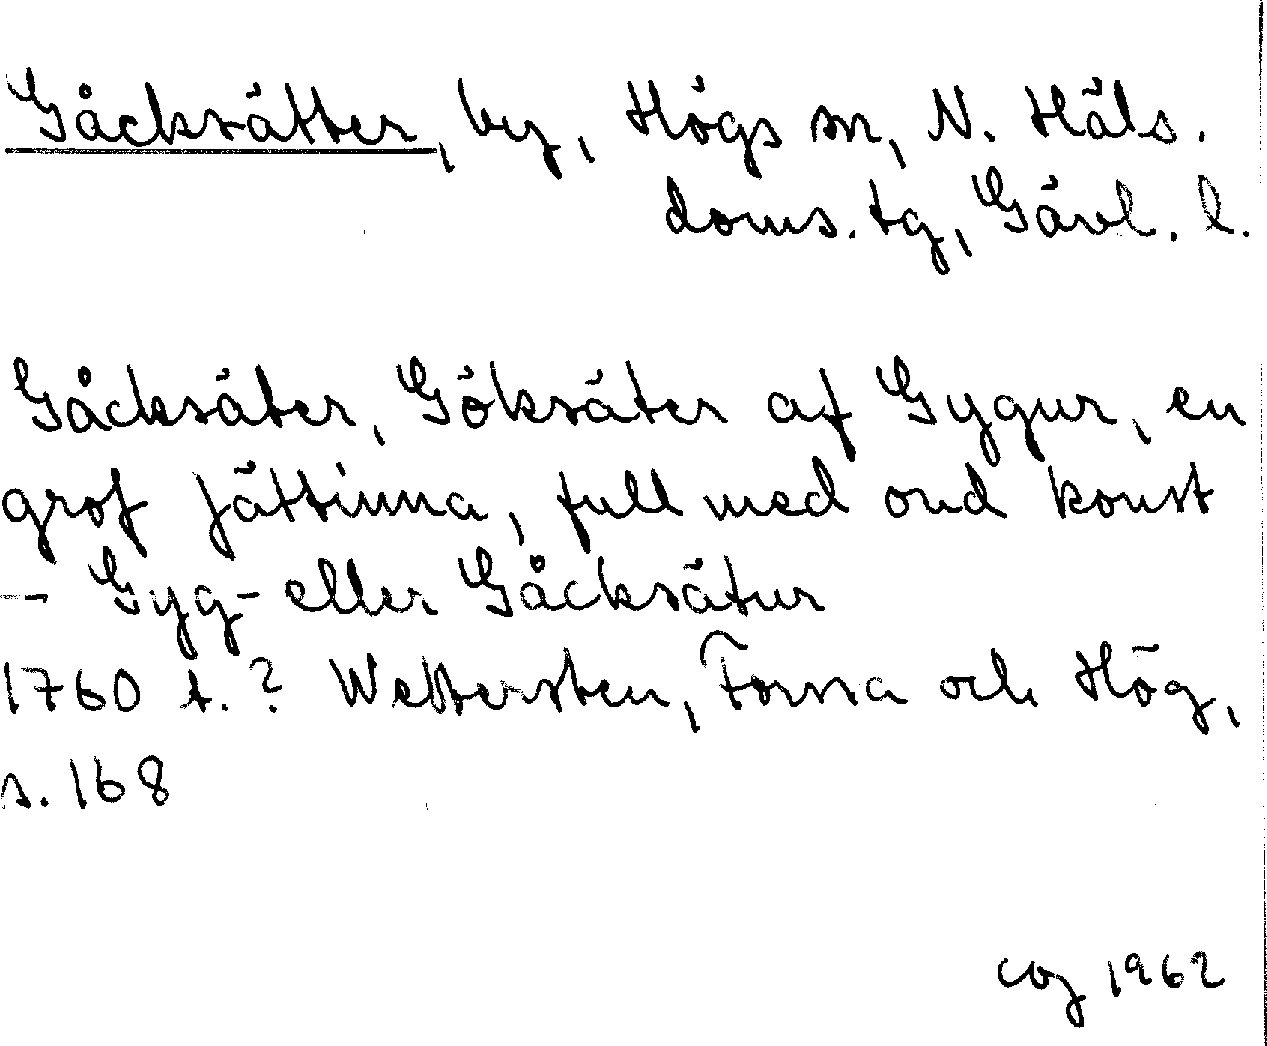 Gåcksätter, by, Högs sn, N. Häls.
doms. tg, Gävl. l.
Gåcksäter, Göksäter af Gygur, en
grof jättinna, full med ond konst
– Gyg- eller Gåcksätur
1760 t.? Wettersten, Forssa och Hög,
s. 168
1962